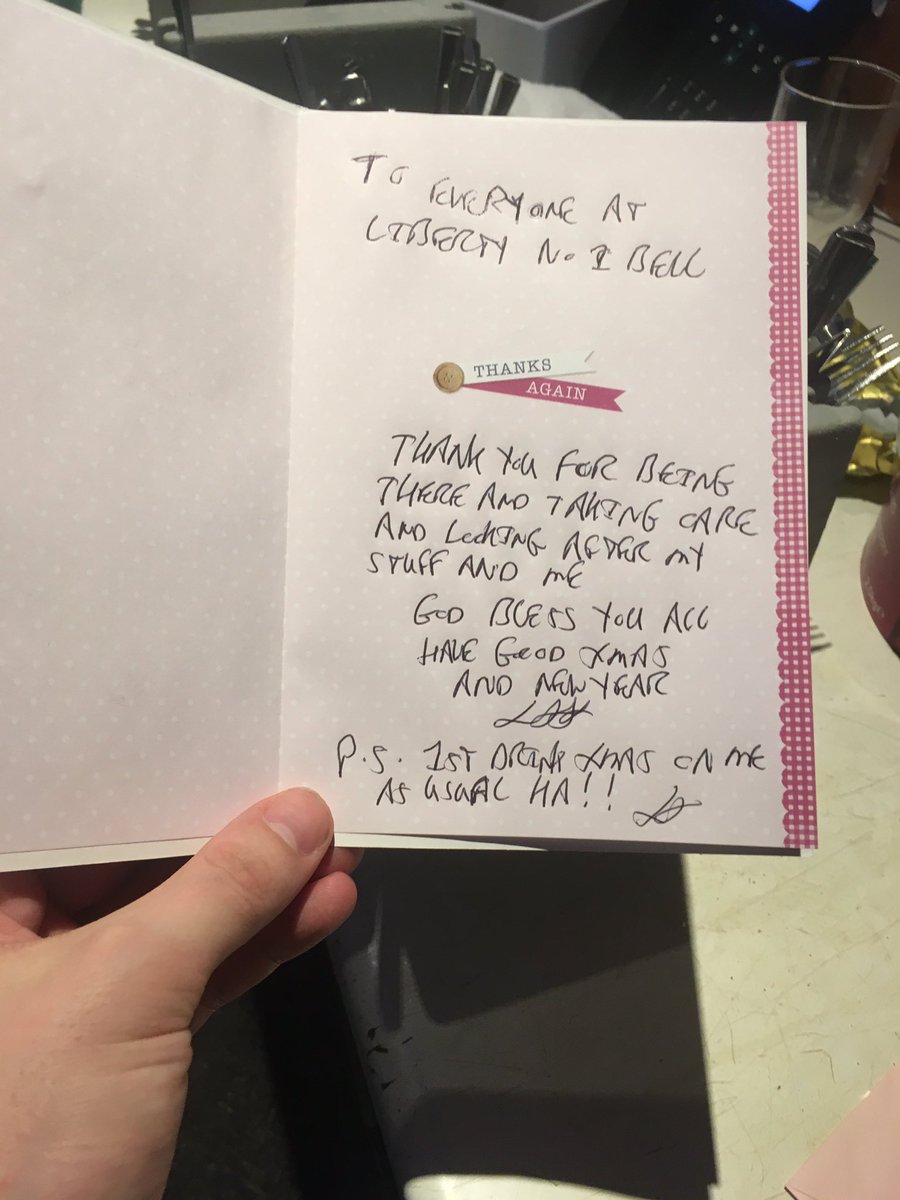 TO EVERYONE AT
LIBERTY No 1 BELL
THANKS
AGAIN
THANK YOU FOR BEING
THERE AND TAKING CARE
AND LOOKING AFTER MY
STUFF AND ME
GOD BLESS YOU ALL
HAVE GOOD XMAS
AND NEW YEAR
P.S. 1ST DRINK XMAS ON ME
AS USUAL HA!!